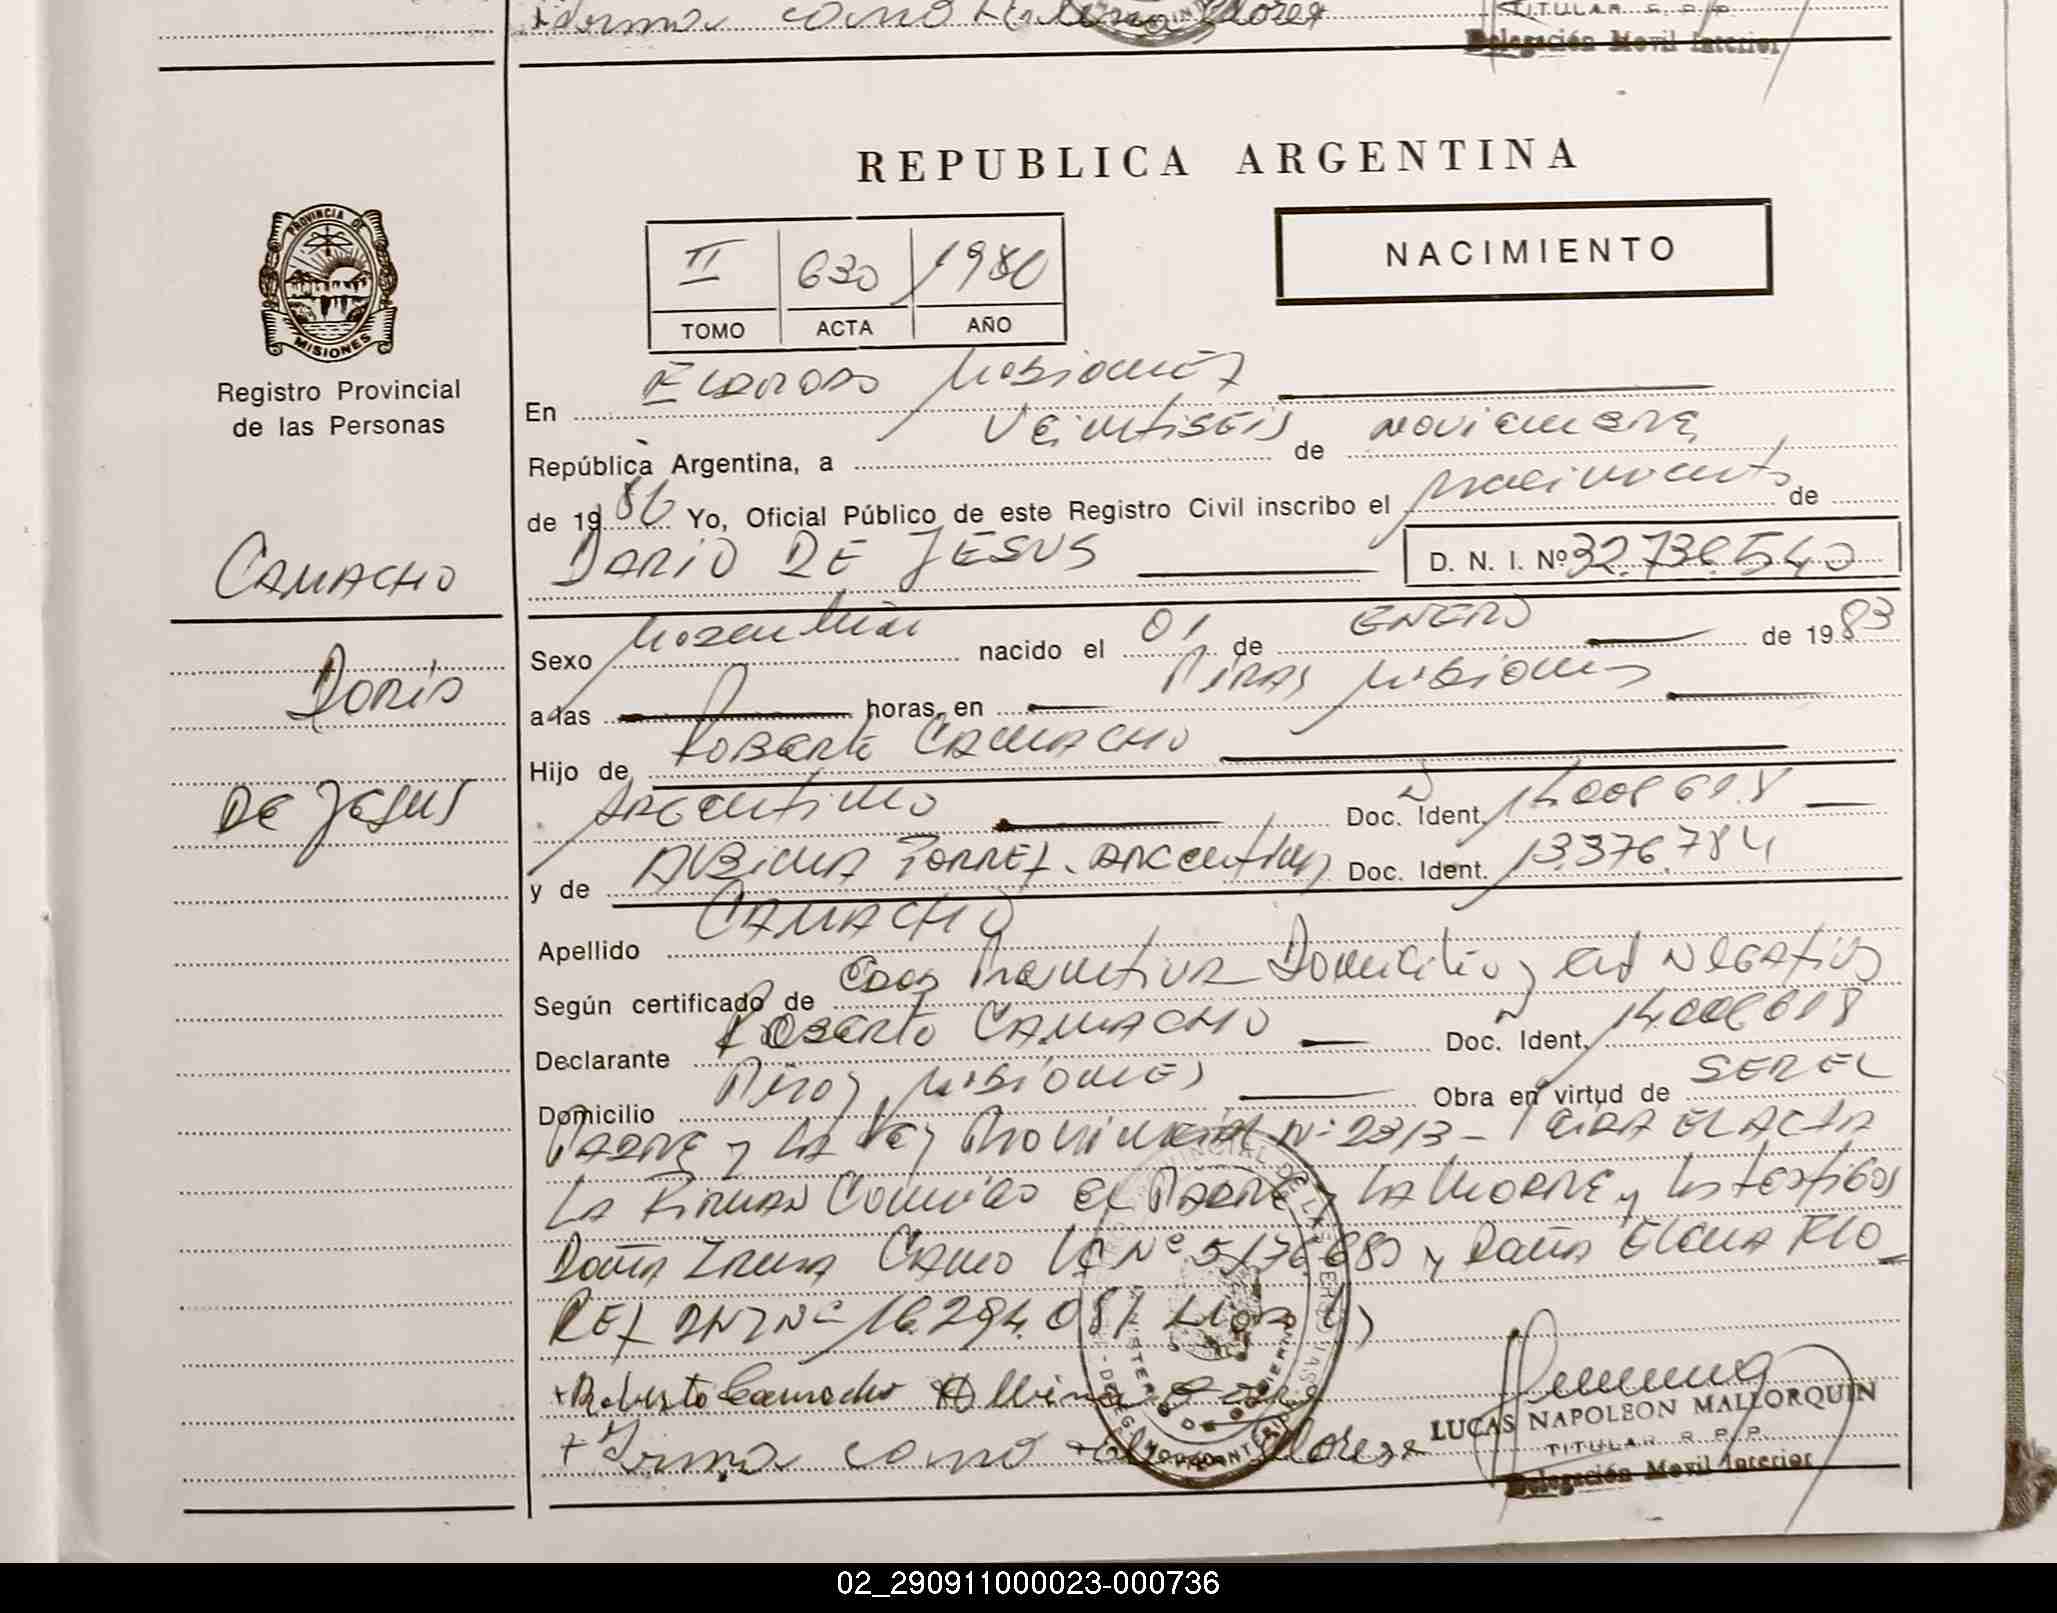 Irma como Flores
TITULAR R. P. P.
Delegación Movil Interior
REPUBLICA ARGENTINA
PROVINCIA DE MISIONES
II 630 1980
NACIMIENTO
TOMO ACTA AÑO
Registro Provincial
de las Personas
En Eldorado Misiones
República Argentina, a Veintiseis de Noviembre
de 1986 Yo, Oficial Público de este Registro Civil inscribo el nacimiento de
CAMACHO
DARIO DE JESUS D. N. I. Nº 32.738.540
Sexo Masculino nacido el 01 de ENERO de 1983
Dario
a las horas, en Piray Misiones
Hijo de Roberto CAMACHO
DE JESUS
Argentino Doc. Ident. 14.006618
y de Albina Torrez. argentina Doc. Ident. 13.376.784
Apellido CAMACHO
Según certificado de Domicilio y Cert Negativo
Declarante Roberto CAMACHO Doc. Ident. 14.006618
Domicilio Piray Misiones Obra en virtud de SER EL
PADRE y LA Ley Provincial Nº 2313 - Leida EL ACTA
LA Firman Conmigo el PADRE y LA MADRE y los testigos
Doña Irma Cano LC Nº 5.176.680 y Doña Elena FLO
REZ DNI Nº 16.294.081
+Roberto Camacho Albina
+ Irma cano Florez
LUCAS NAPOLEON MALLORQUIN
TITULAR R. P. P.
Delegación Movil Interior
02_290911000023-000736